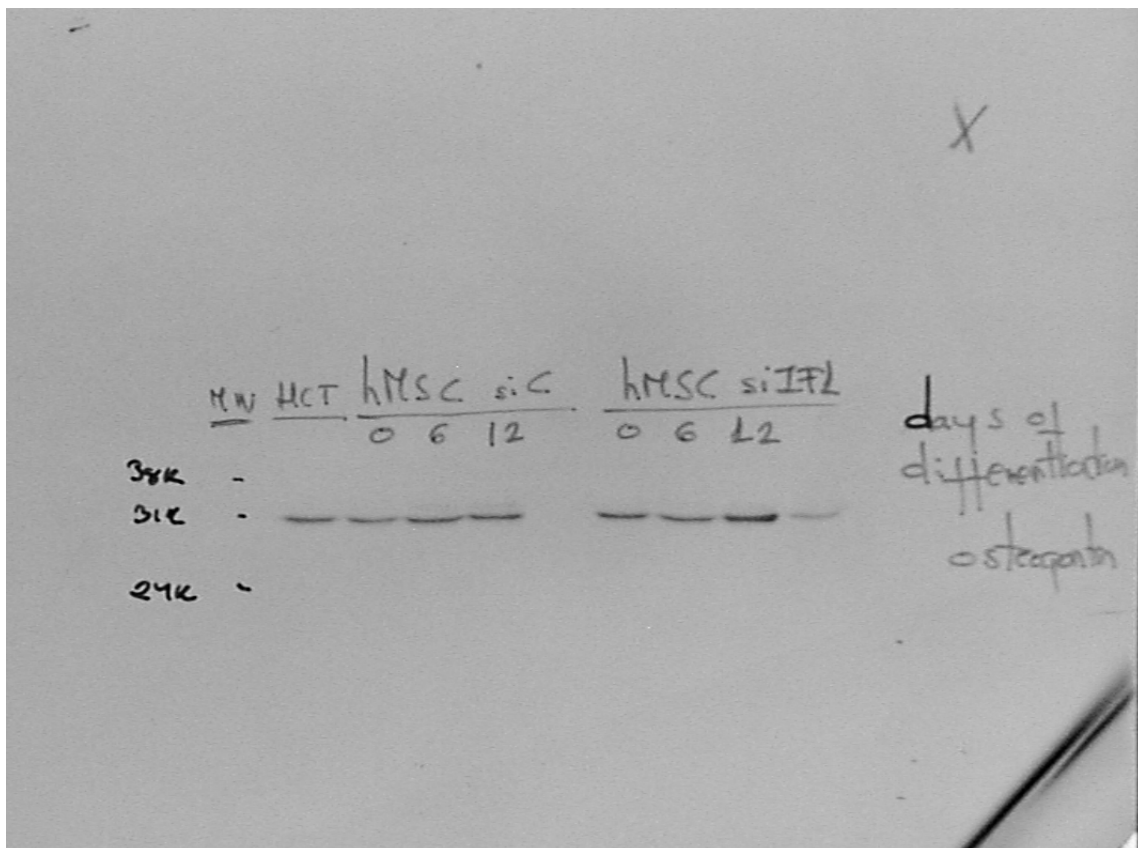 X
MW HCT hMSC siC hMSC siIF1
0 6 12 0 6 12
days of
differentiation
osteopontin
38K -
31K -
24K -